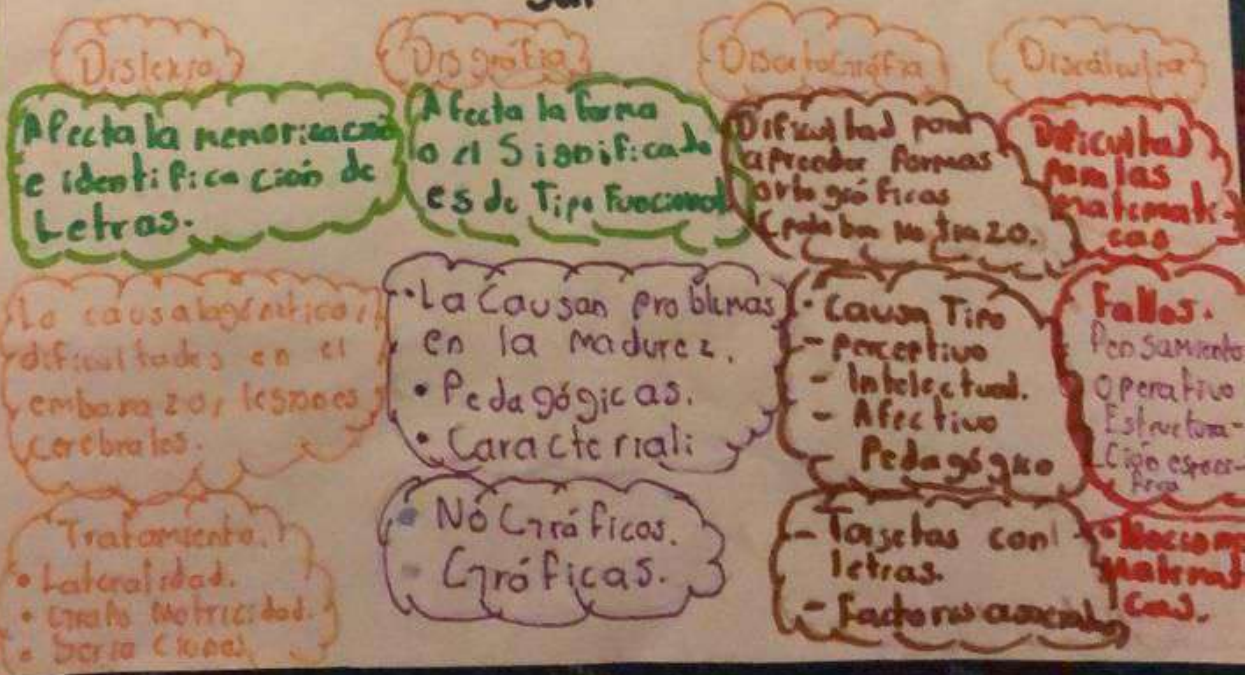 Dislexia
Afecta la memorización
e identificación de
Letras.
La causa la genética,
dificultades en el
embarazo, lesiones
cerebrales.
Tratamiento.
• Lateralidad.
• Grafo Motricidad.
• Seriaciones
Disgráfia
Afecta la forma
o el Significado
es de Tipo Funcional
• La Causan problemas
en la madurez.
• Pedagógicas.
• Caracteriali
• No Gráficos.
• Gráficas.
Disortográfia
Dificultad para
aprender formas
ortográficas
(palabra no trazo.
• Causa Tipo
- perceptivo
- Intelectual.
- Afectivo
- Pedagógico
- Tarjetas con
letras.
- Factores
Discálculia
Dificultad
para las
matemáti-
cas
Fallos.
Pensamiento
operativo
Estructura-
ción
• Nociones
matemáti
cas.